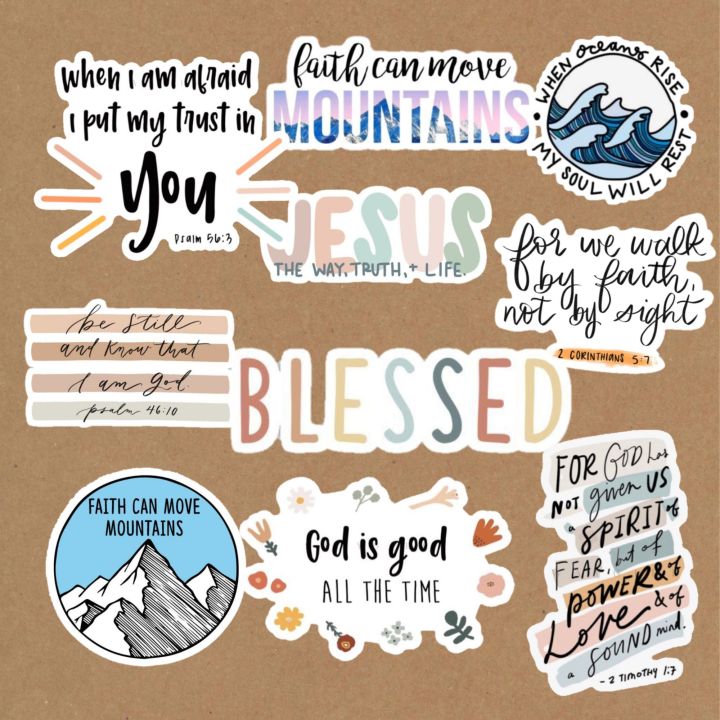 when I am afraid
I put my trust in
you
Psalm 56:3
faith can move
MOUNTAINS
WHEN oceans RISE
MY SOUL WILL REST
JESUS
THE WAY, TRUTH, + LIFE.
for we walk
by faith,
not by sight
2 CORINTHIANS 5:7
be still
and know that
I am God.
psalm 46:10
BLESSED
FAITH CAN MOVE
MOUNTAINS
God is good
ALL THE TIME
FOR GOD has
NOT given US
a SPIRIT of
FEAR, but of
POWER & of
LOVE & of
a SOUND mind.
- 2 TIMOTHY 1:7